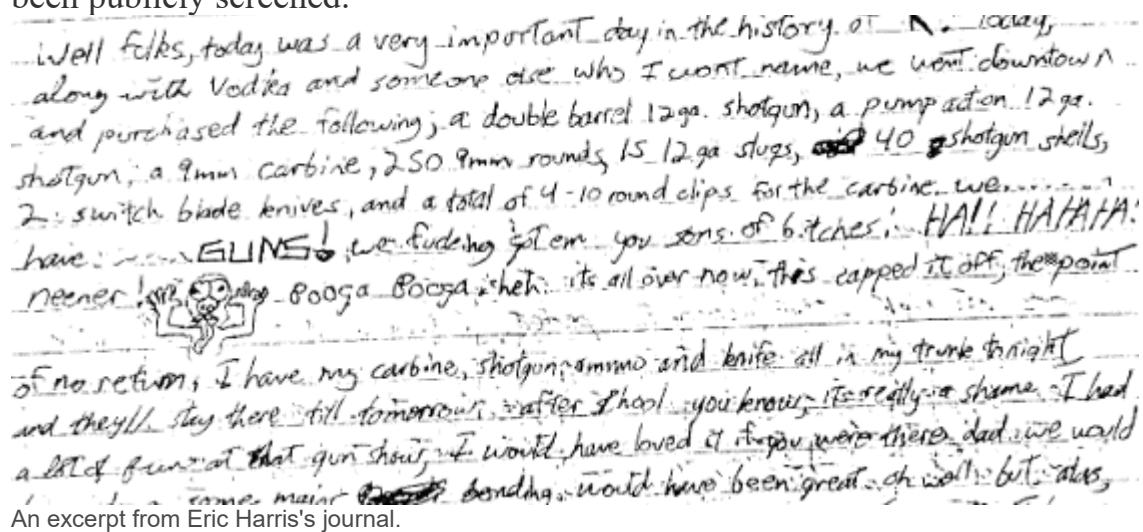 been publicly screened.
Well folks, today was a very important day in the history of R. Today,
along with Vodka and someone else who I wont name, we went downtown
and purchased the following; a double barrel 12ga. shotgun, a pump action 12ga.
shotgun, a 9mm carbine, 250 9mm rounds, 15 12ga slugs, 40 shotgun shells,
2 switch blade knives, and a total of 4 - 10 round clips for the carbine. we
have GUNS! we fucking got em you sons of bitches! HA!! HAHAHA!
neener! Booga Booga. heh. its all over now, this capped it off, the point
of no return, I have my carbine, shotgun, ammo and knife all in my trunk tonight
and they'll stay there till tomorrow, after school you know, its really a shame. I had
a lot of fun at that gun show, I would have loved it if you were there dad. we would
some major bonding. would have been great. oh well. but alas,
An excerpt from Eric Harris's journal.